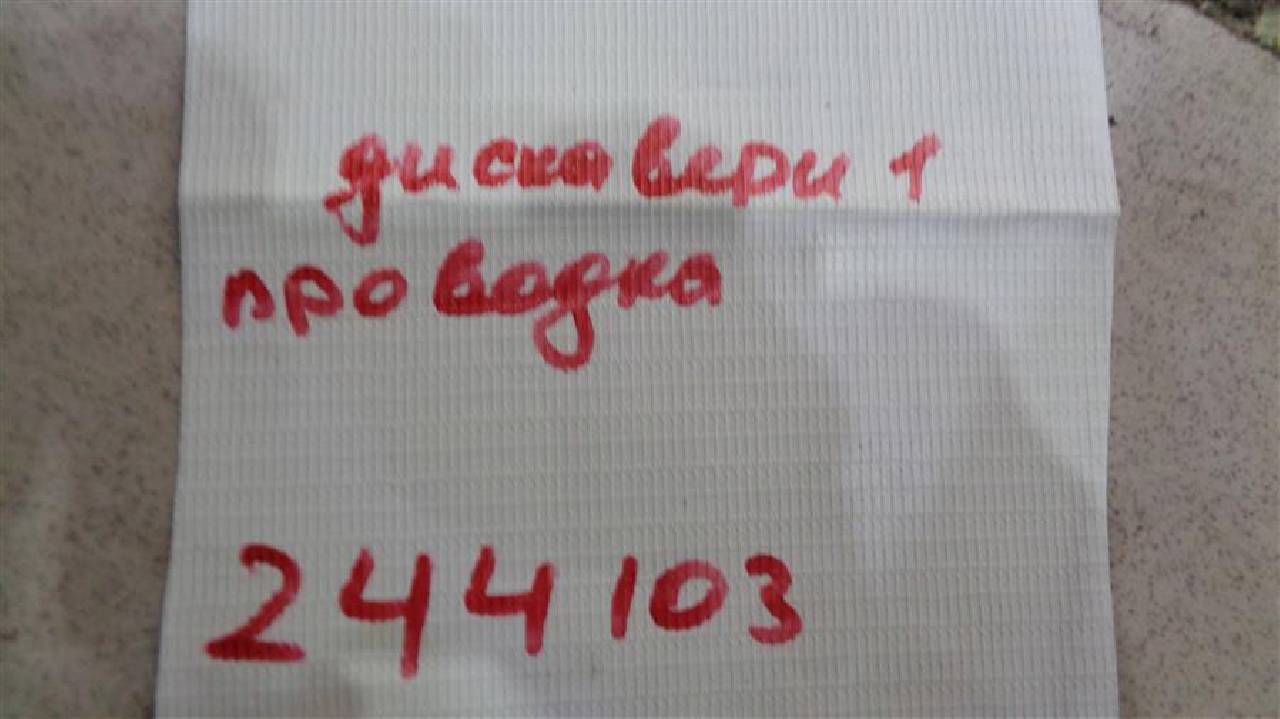 дискавери 1
проводка
244103